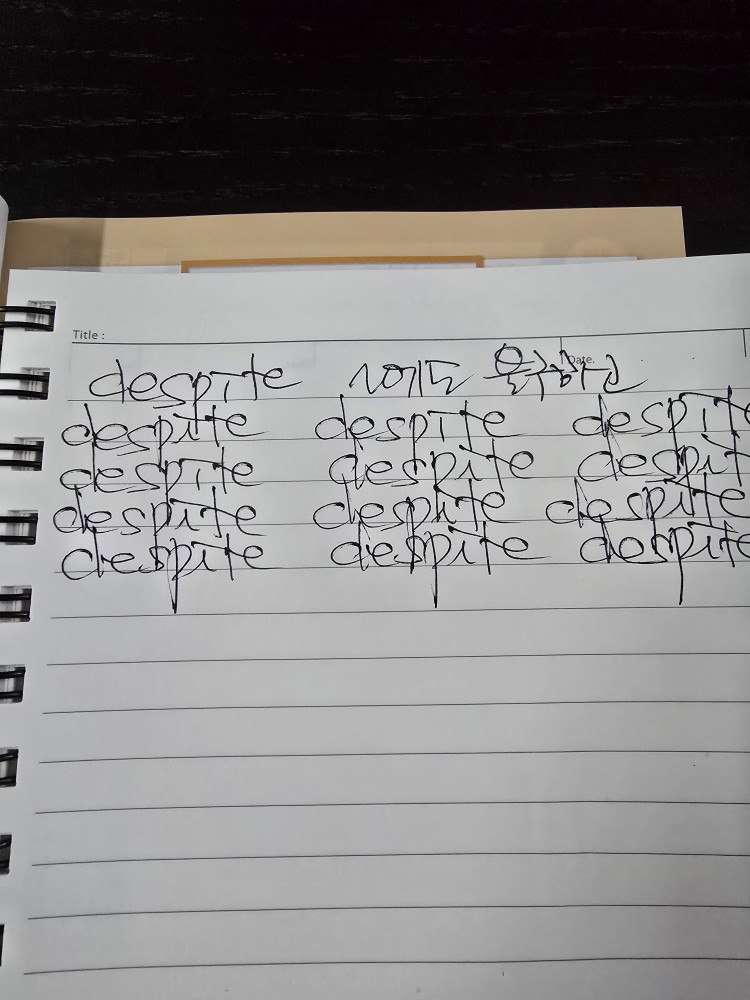 Title :
Date.
despite ~에도 불구하고
despite despite despite
despite despite despite
despite despite despite
despite despite despite